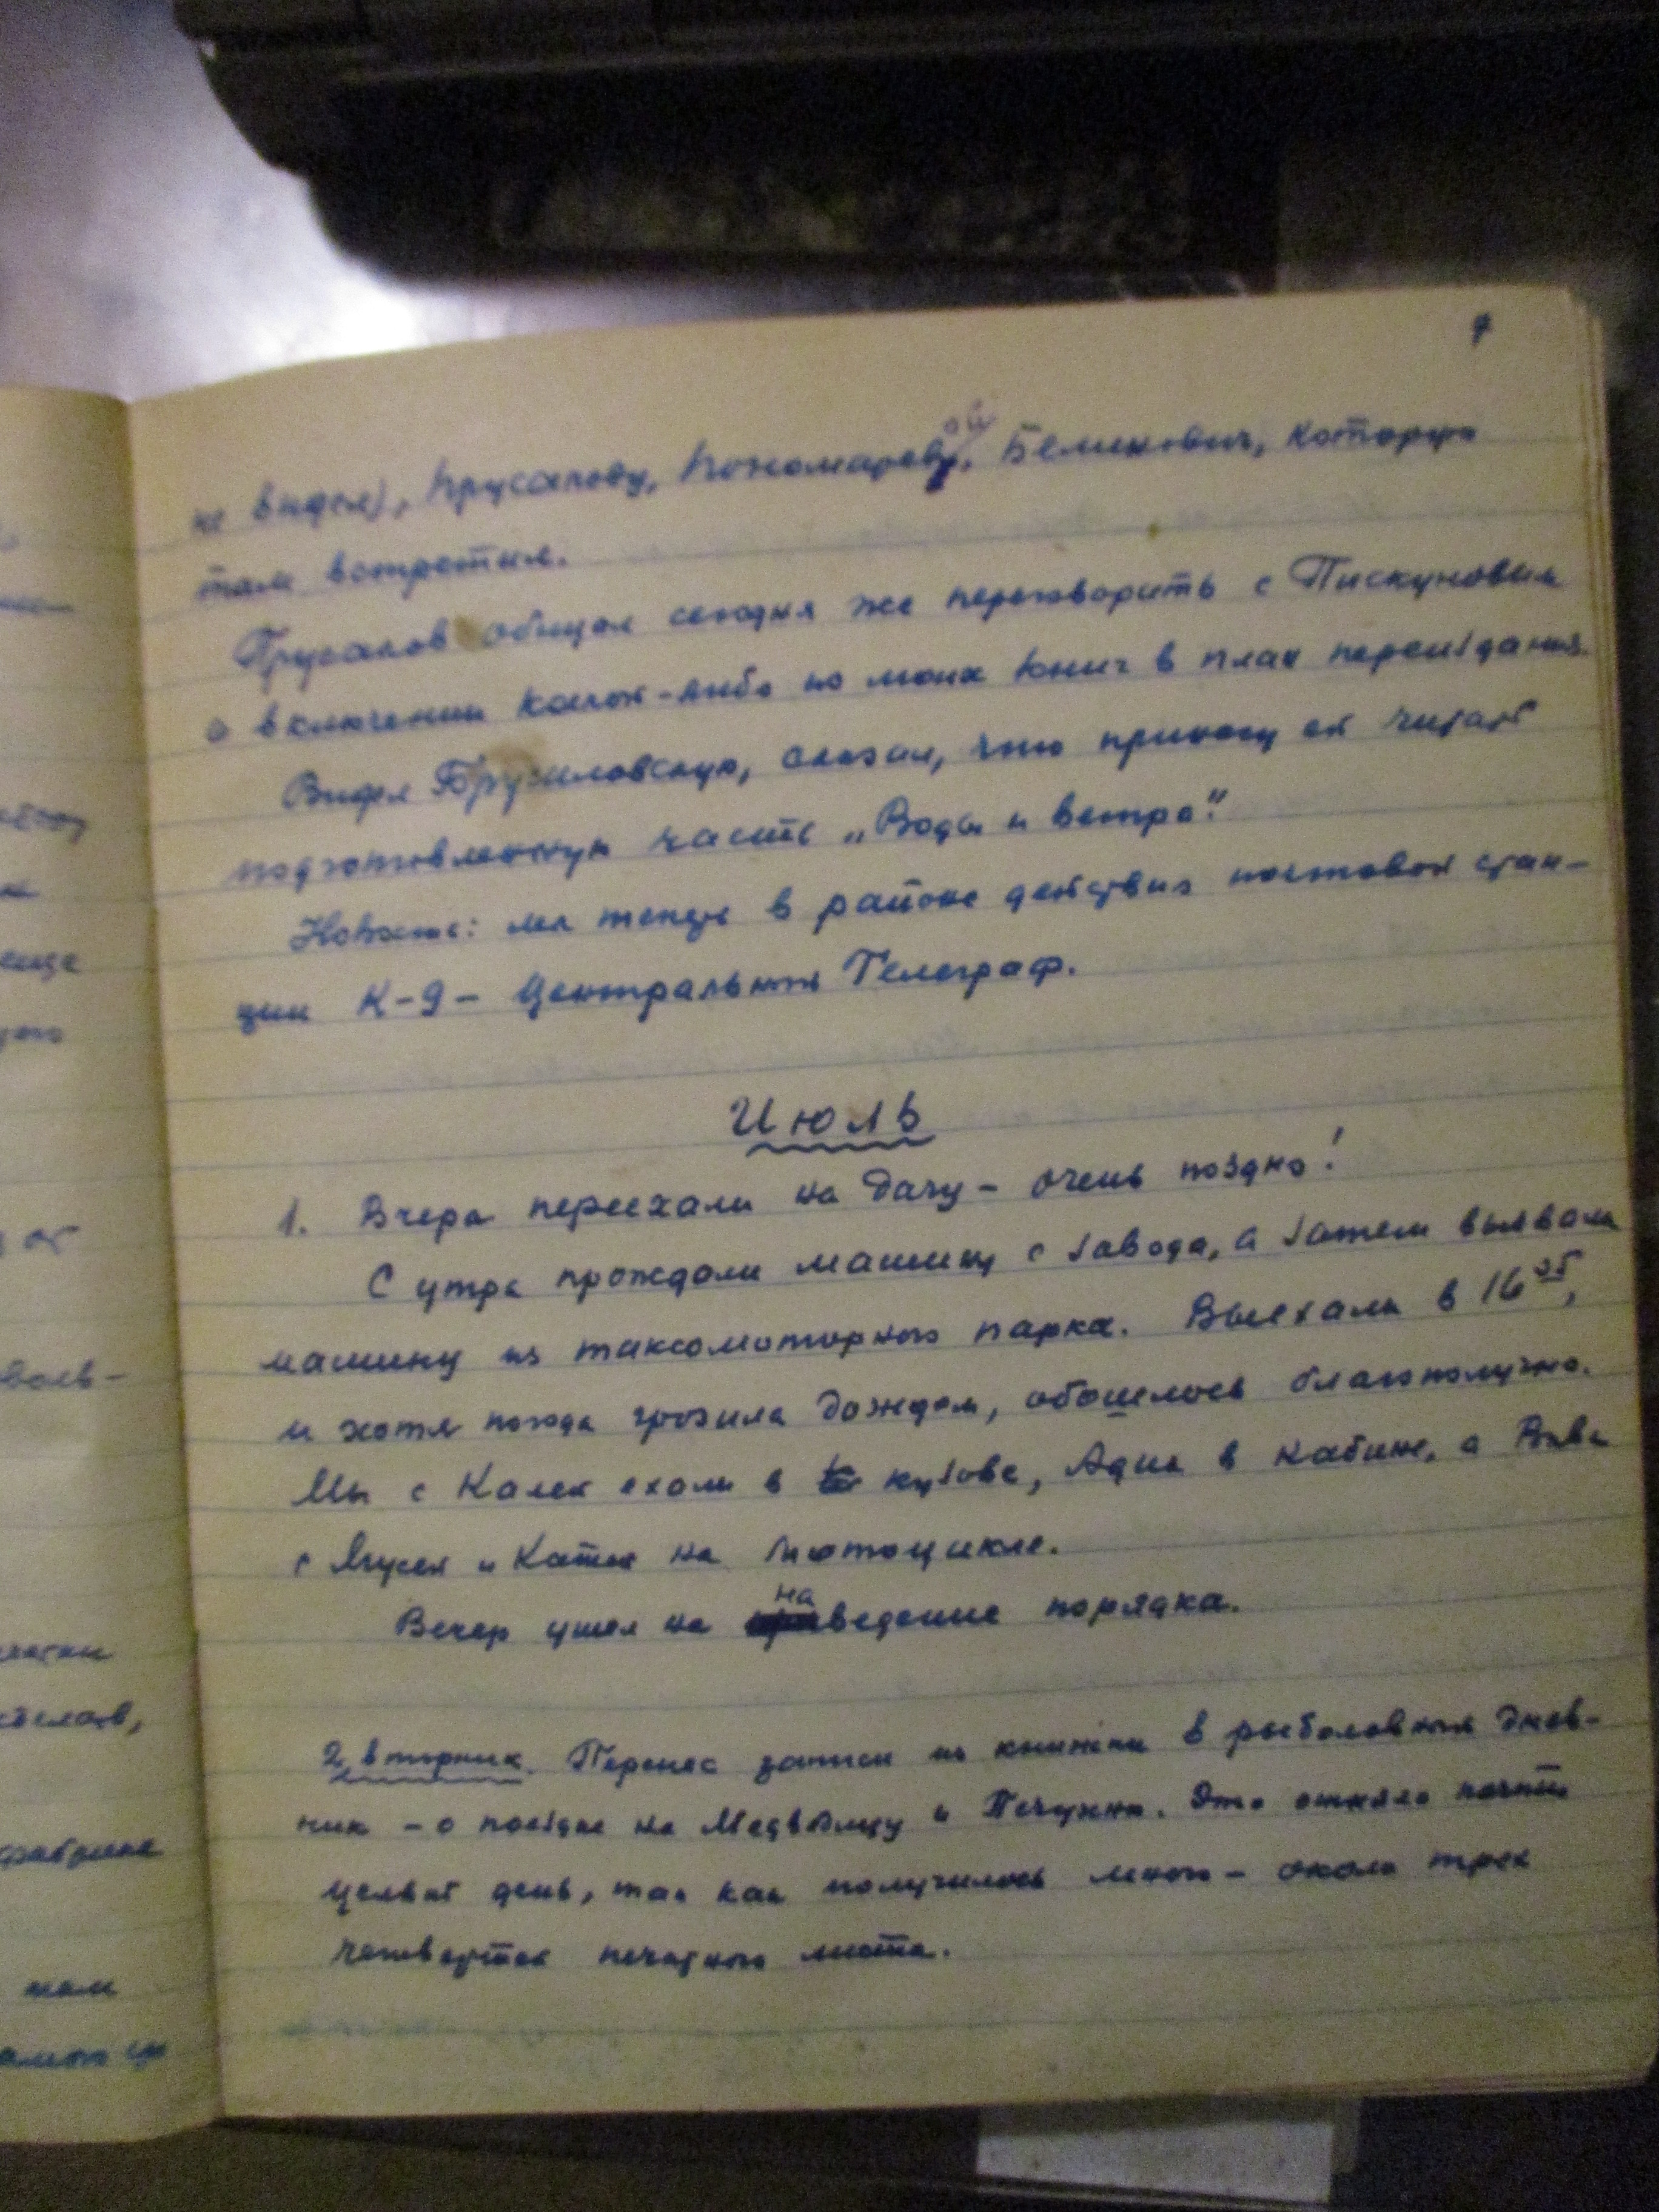 7
не видел), Прусакову, Пономаревой, Белинович, которую
там встретил.
Прусаков обещал сегодня же переговорить с Пискуновым
о включении какой-либо из моих книг в план переиздания.
Видел Брусиловскую, сказал, что приношу ей читать
подготовленную часть „Воды и ветра".
Новость: мы теперь в районе действия почтовой стан-
ции К-9 – Центральный Телеграф.
Июль
1. Вчера переехали на дачу – очень поздно!
С утра прождали машину с завода, а затем вызвали
машину из таксомоторного парка. Выехали в 16,
и хотя погода грозила дождем, обошлось благополучно.
Мы с Калей ехали в кузове, Адик в кабине, а Вива
с Мусей и Катей на мотоцикле.
Вечер ушел на наведение порядка.
2, вторник. Перенес записи из книжки в рыболовный днев-
ник – о поездке на Медведицу и Печухни. Это отняло почти
целый день, так как получилось много – около трех
четвертей печатного листа.
еще
воев-
там